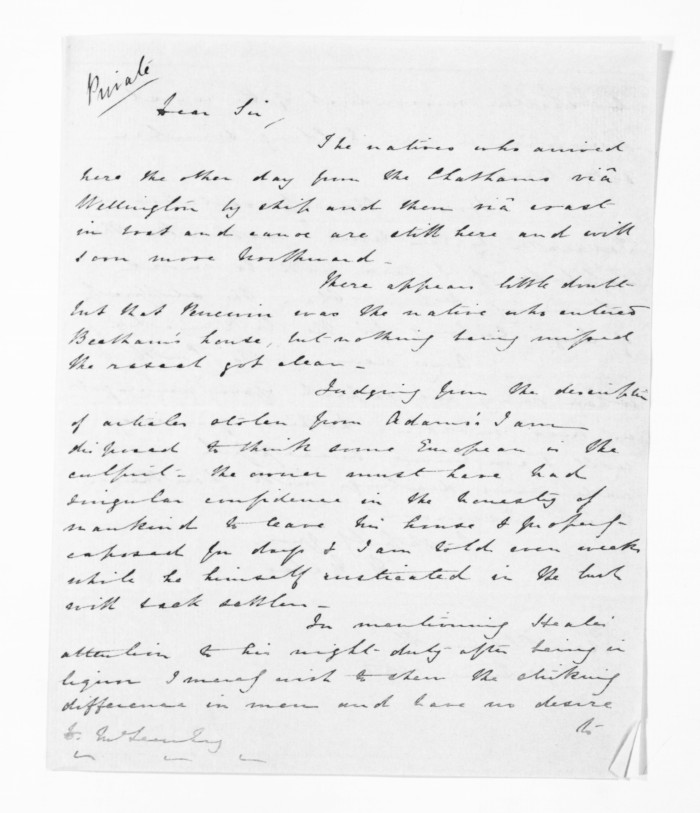 Private
Dear Sir,
The natives who arrived
here the other day from the Chathams viâ
Wellington by ship and then viâ coast
in boat and canoe are still here and will
soon move Northward -
There appears little doubt
but that was the native who entered
Beetham's house, but nothing being missed
the rascal got clear -
Judging from the description
of articles stolen from Adams's I am
disposed to think some European is the
culprit - the owner must have had
singular confidence in the honesty of
mankind to leave his house & property
exposed for days & I am told even weeks
while he himself rusticated in the bush
with
In mentioning
attention to his night-duty after being in
liquor I merely wish to shew the striking
difference in men and have no desire
to
D. McLean Esq